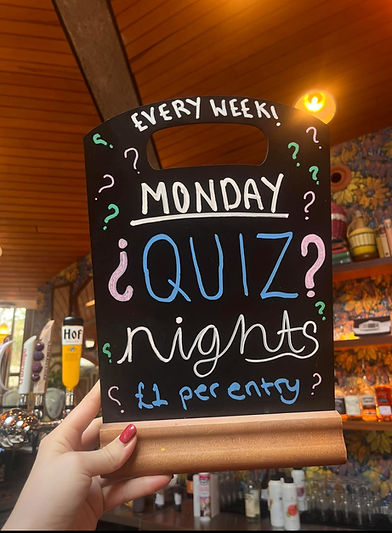 EVERY WEEK!
? ?
? ?
? ?
MONDAY
? ?
¿QUIZ?
?
? nights
£1 per entry
? ?
Hof